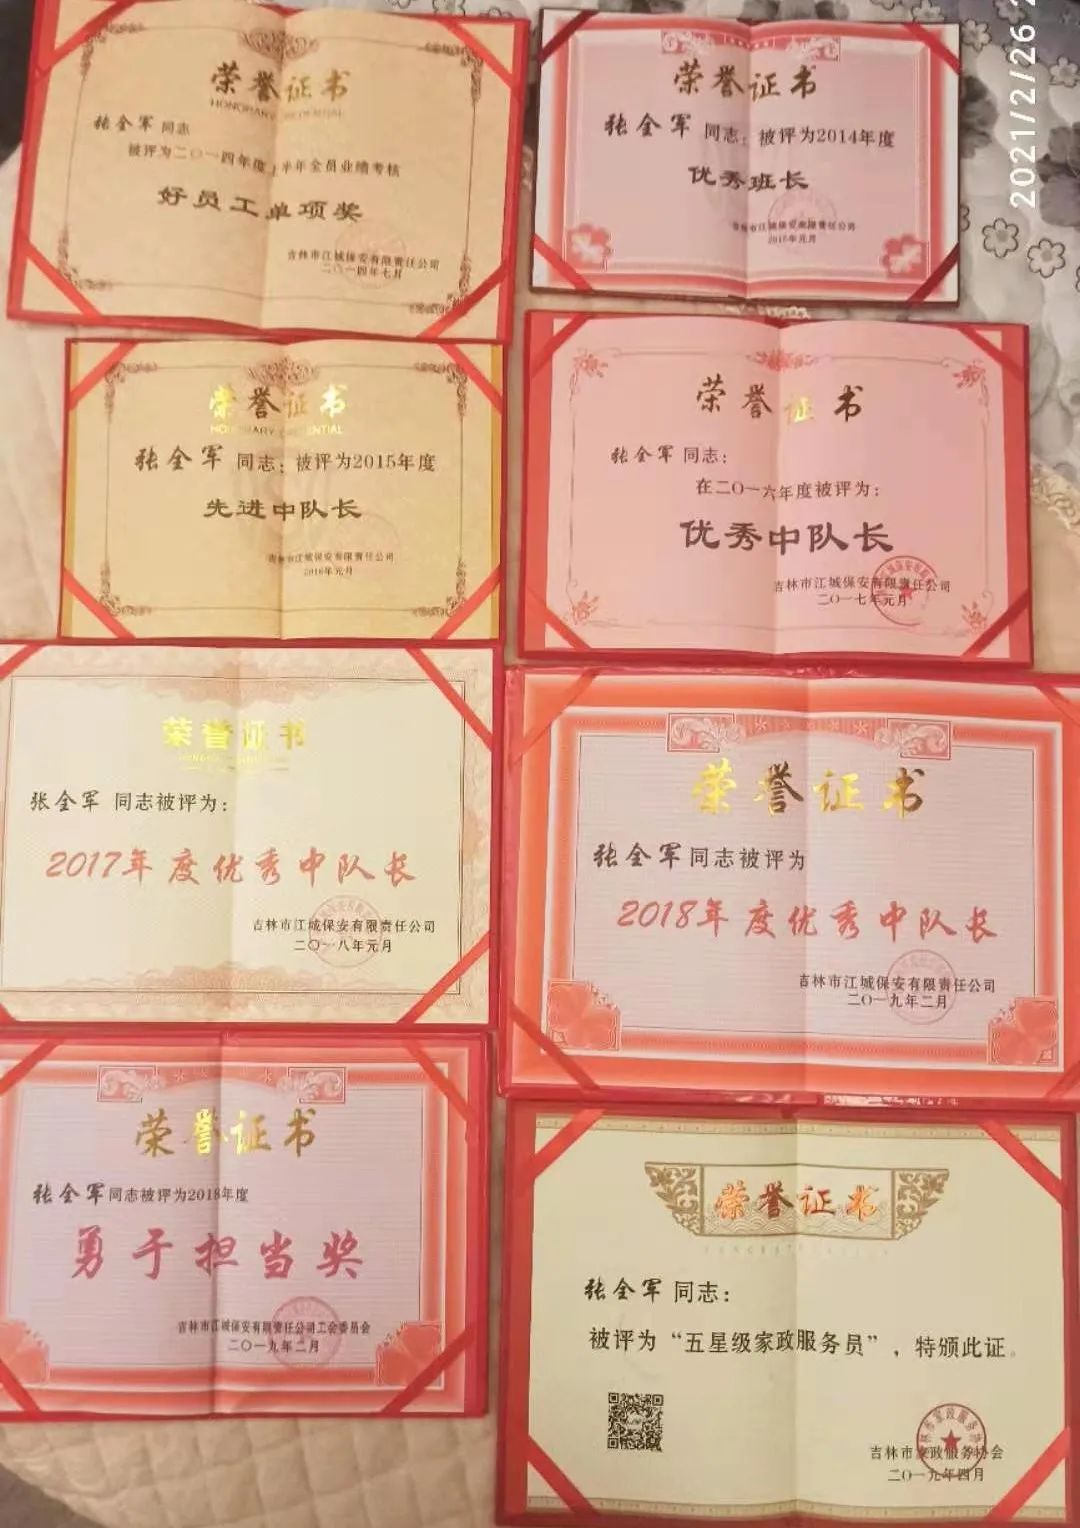 荣誉证书
HONORARY CREDENTIAL
张全军 同志
被评为二〇一四年度上半年全员业绩考核
好员工单项奖
吉林市江城保安有限责任公司
二〇一四年七月
荣誉证书
张全军 同志：被评为2014年度
优秀班长
吉林市江城保安有限责任公司
2015年元月
2021/2/26
荣誉证书
HONORARY CREDENTIAL
张全军 同志：被评为2015年度
先进中队长
吉林市江城保安有限责任公司
2016年元月
荣誉证书
张全军 同志：
在二〇一六年度被评为：
优秀中队长
吉林市江城保安有限责任公司
二〇一七年元月
荣誉证书
张全军 同志被评为：
2017年度优秀中队长
吉林市江城保安有限责任公司
二〇一八年元月
荣誉证书
张全军同志被评为
2018年度优秀中队长
吉林市江城保安有限责任公司
二〇一九年二月
荣誉证书
张全军同志被评为2018年度
勇于担当奖
吉林市江城保安有限责任公司工会委员会
二〇一九年二月
荣誉证书
张全军 同志：
被评为“五星级家政服务员”，特颁此证。
吉林市家政服务协会
二〇一九年四月